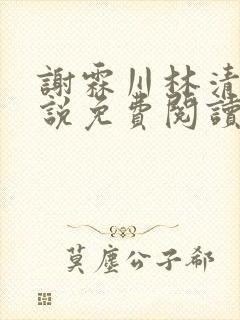 謝霖川林清
說免費閱讀
莫塵公子郗